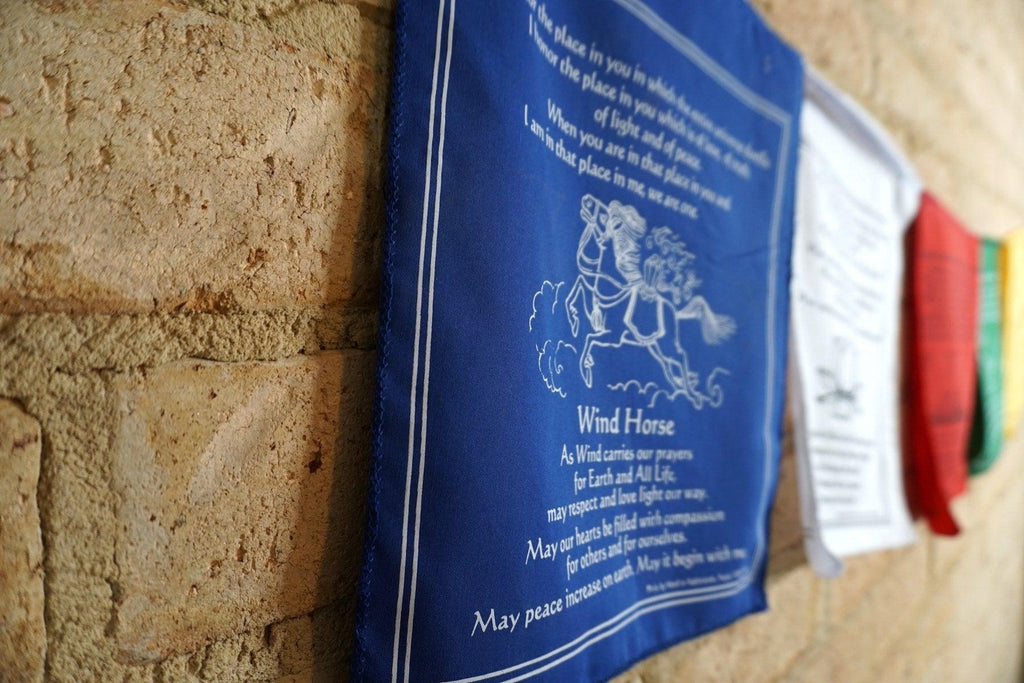 the place in you in which the entire universe dwells
I honor the place in you which is of love, of truth
of light and of peace.
When you are in that place in you and
I am in that place in me, we are one.
Wind Horse
As Wind carries our prayers
for Earth and All Life,
may respect and love light our way.
May our hearts be filled with compassion
for others and for ourselves.
May peace increase on earth. May it begin with me.